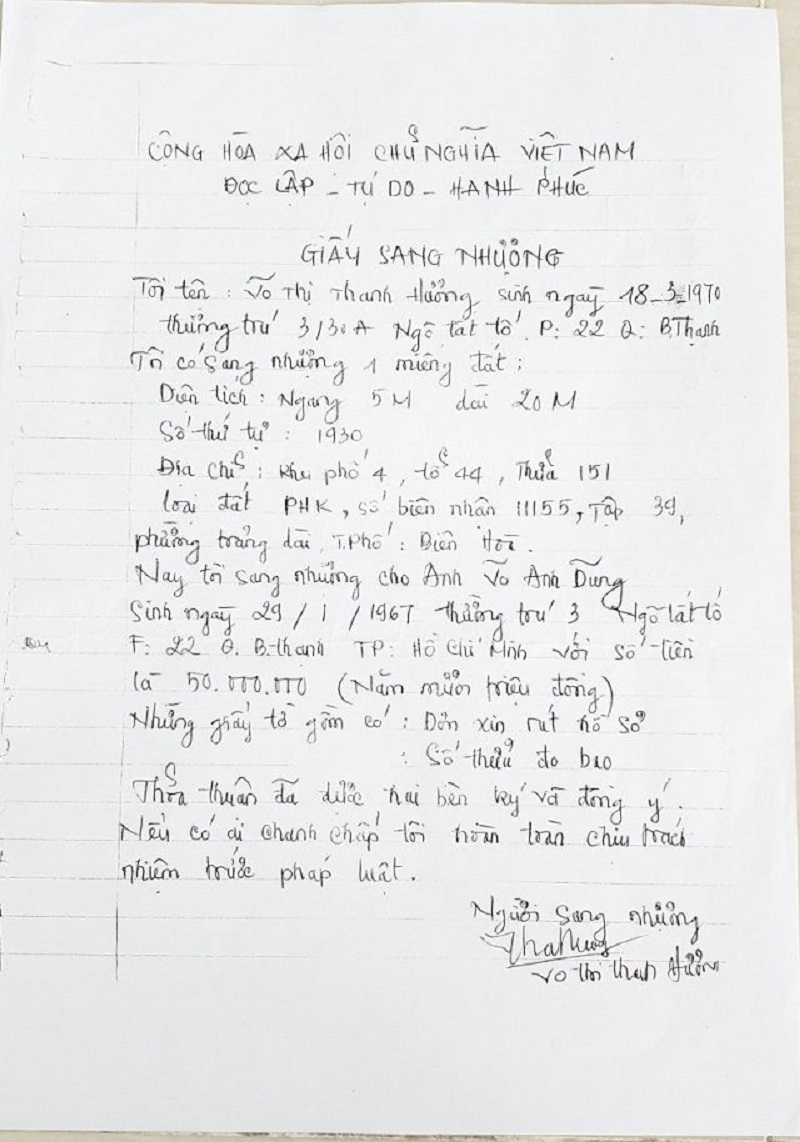 CỘNG HÒA XA HÔI CHỦ NGHĨA VIÊT NAM
ĐỌC LẬP - TỰ DO - HANH PHÚC
GIẤY SANG NHƯỢNG
Tôi tên : Võ Thị Thanh Hương sinh ngaỳ 18-3-1970
thường trú 3/30A Ngô tất tố. P: 22 Q: B.Thạnh
Tôi có sang nhượng 1 miêng đất :
Diên tích : Ngang 5M dài 20M
Số thứ tự : 1930
Đia chỉ : khu phố 4, tổ 44, Thửa 151
loại đất PHK, số biên nhân 11155, Tập 39,
phường trảng dài, T.Phố : Biên Hòa.
Nay tôi sang nhường cho Anh Võ Anh Dũng
Sinh ngaỳ 29/1/1967 thường trú 3 Ngô tất tố
F: 22 Q. B.thanh TP: Hồ Chí Minh với số tiền
là 50.000.000 (Năm mươi triệu đồng)
Những giấy tờ gồm có : Đơn xin rút hồ sơ
: Số thửa đo bao
Thỏa thuân đã được hai bên ký và đồng ý.
Nếu có ai chanh chấp tôi hoàn toàn chiu trách
nhiêm trước pháp luật.
Người sang nhượng
Võ thi thanh Hương